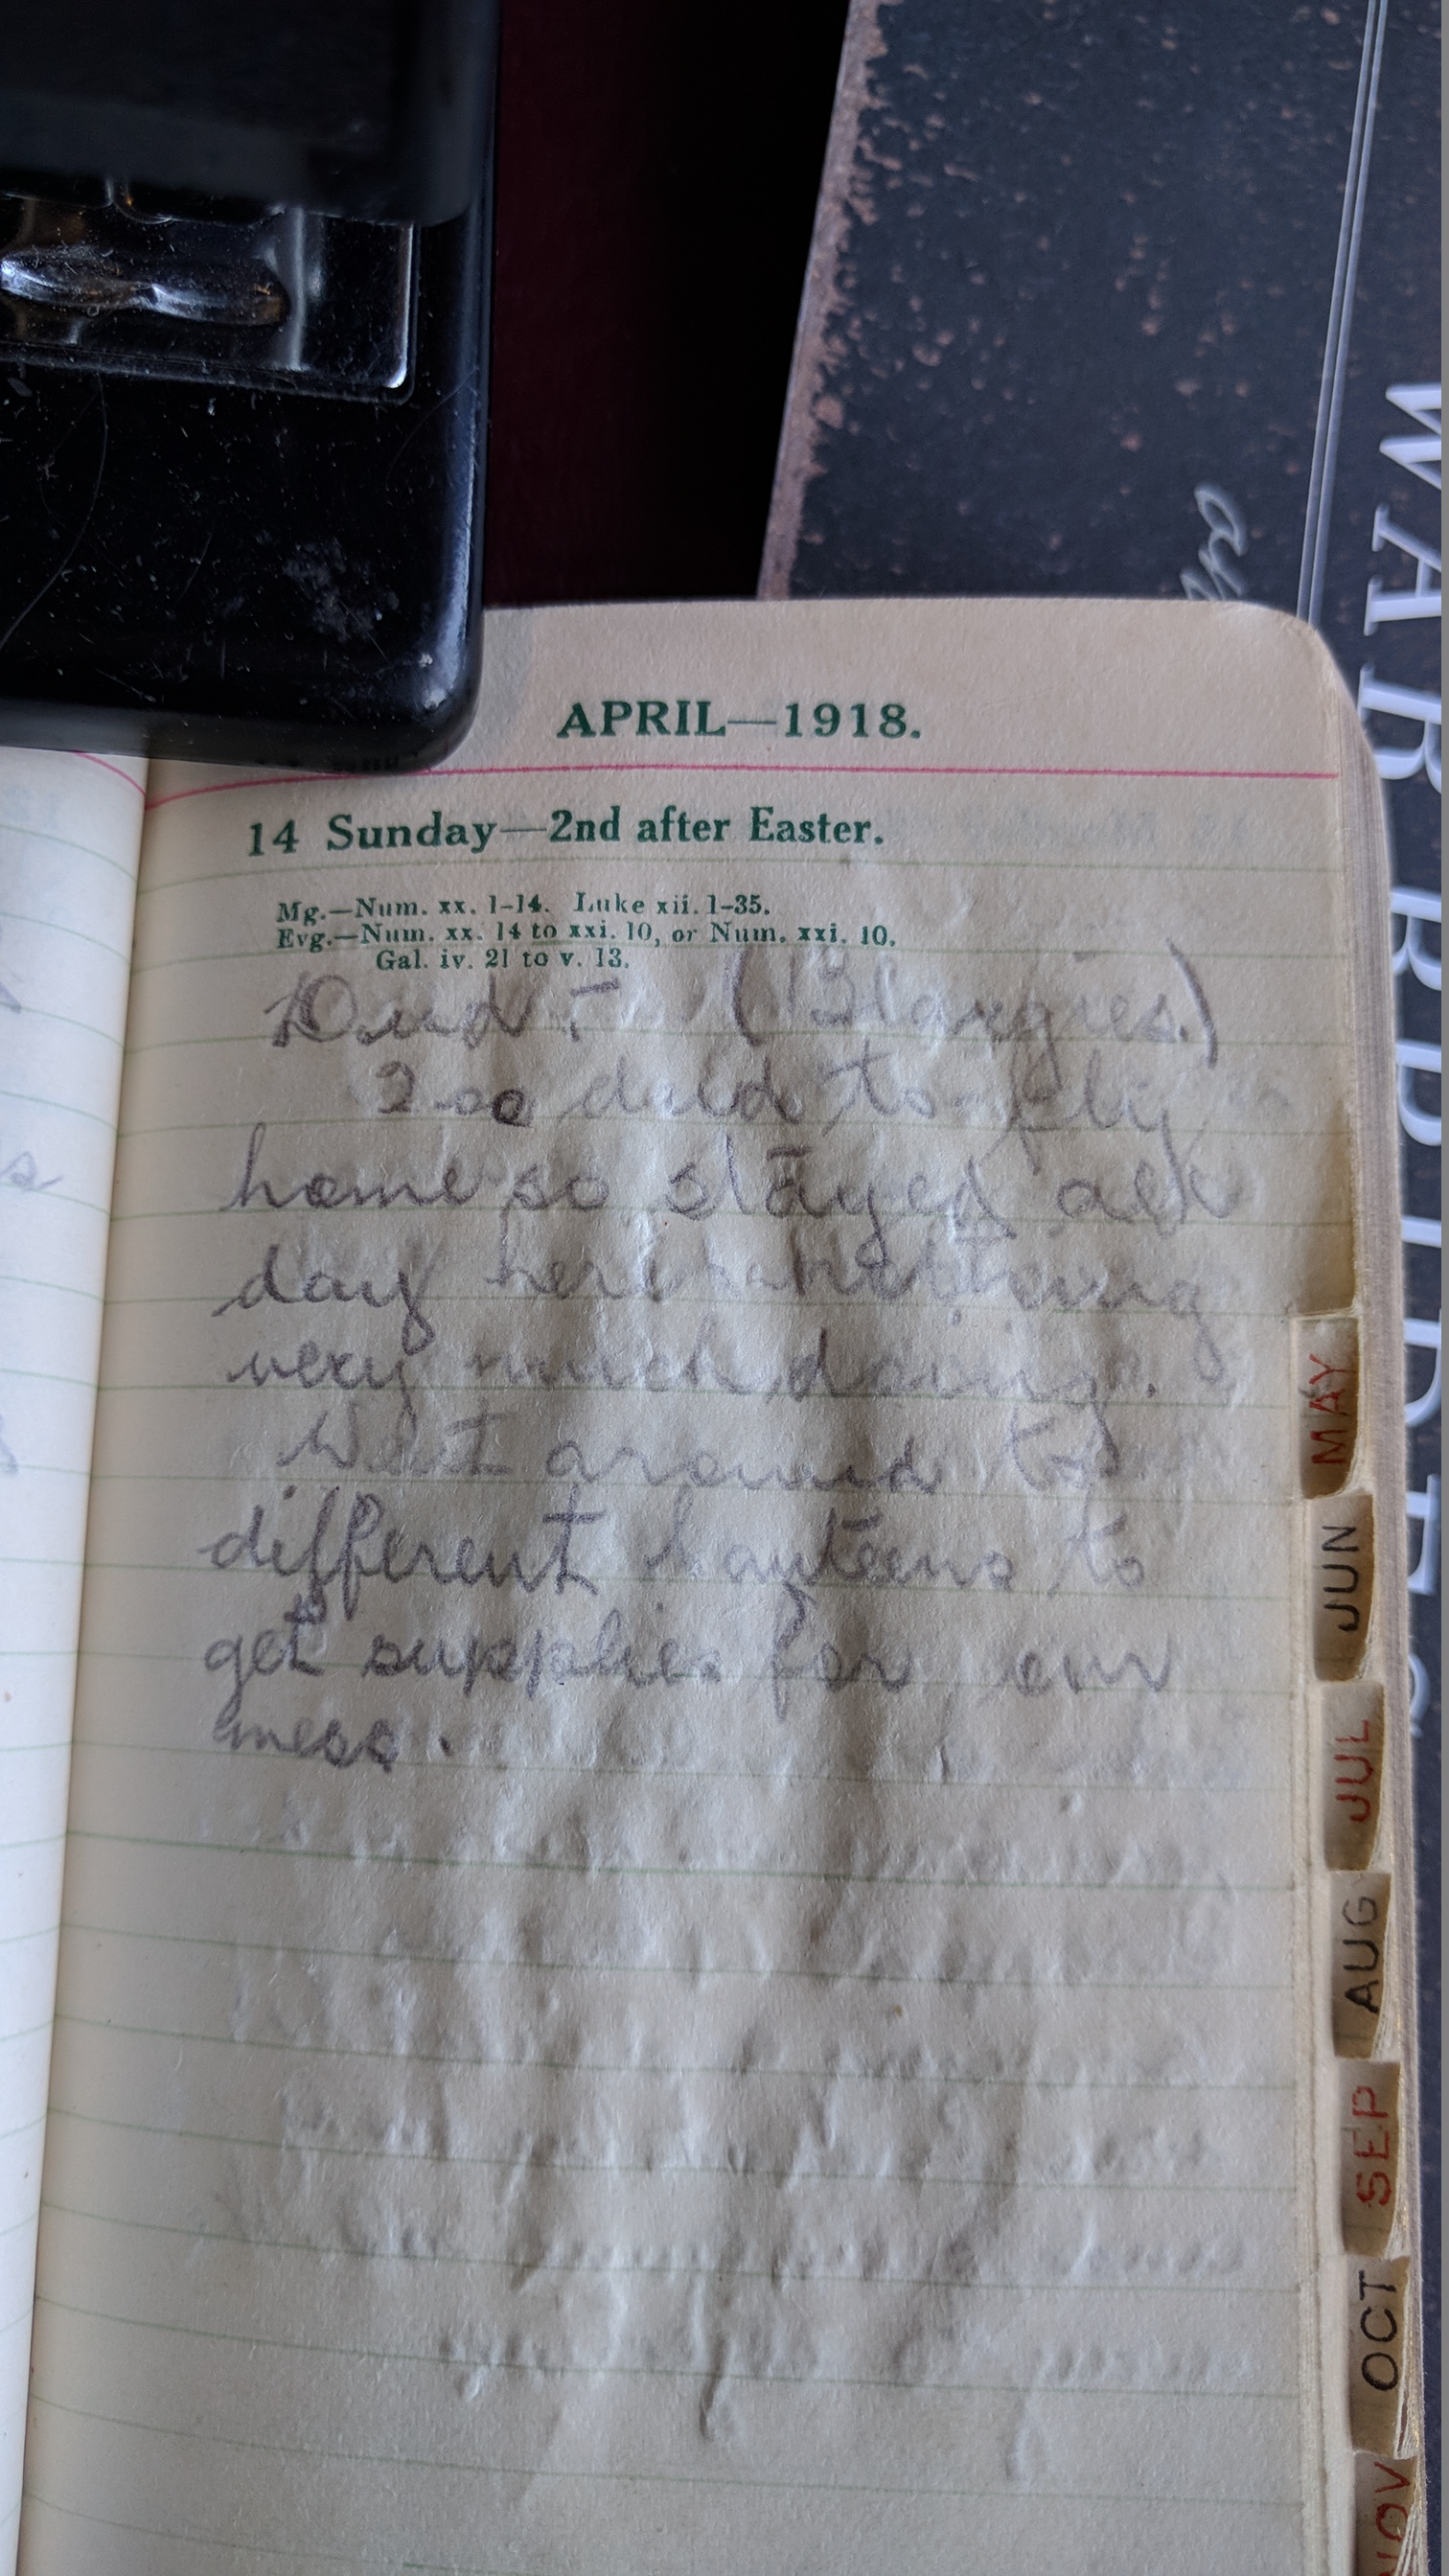 APRIL—1918.
14 Sunday—2nd after Easter.
Mg.—Num. xx. 1-14. Luke xii. 1-35.
Evg.—Num. xx. 14 to xxi. 10, or Num. xxi. 10.
Gal. iv. 21 to v. 13.
Dud :- (Blargies.)
Too dud to fly
home so stayed all
day here nothing
very much doing.
Went around to
different kanteens to
get supplies for our
mess.
MAY
JUN
JUL
AUG
SEP
OCT
NOV
WAR BIRDS